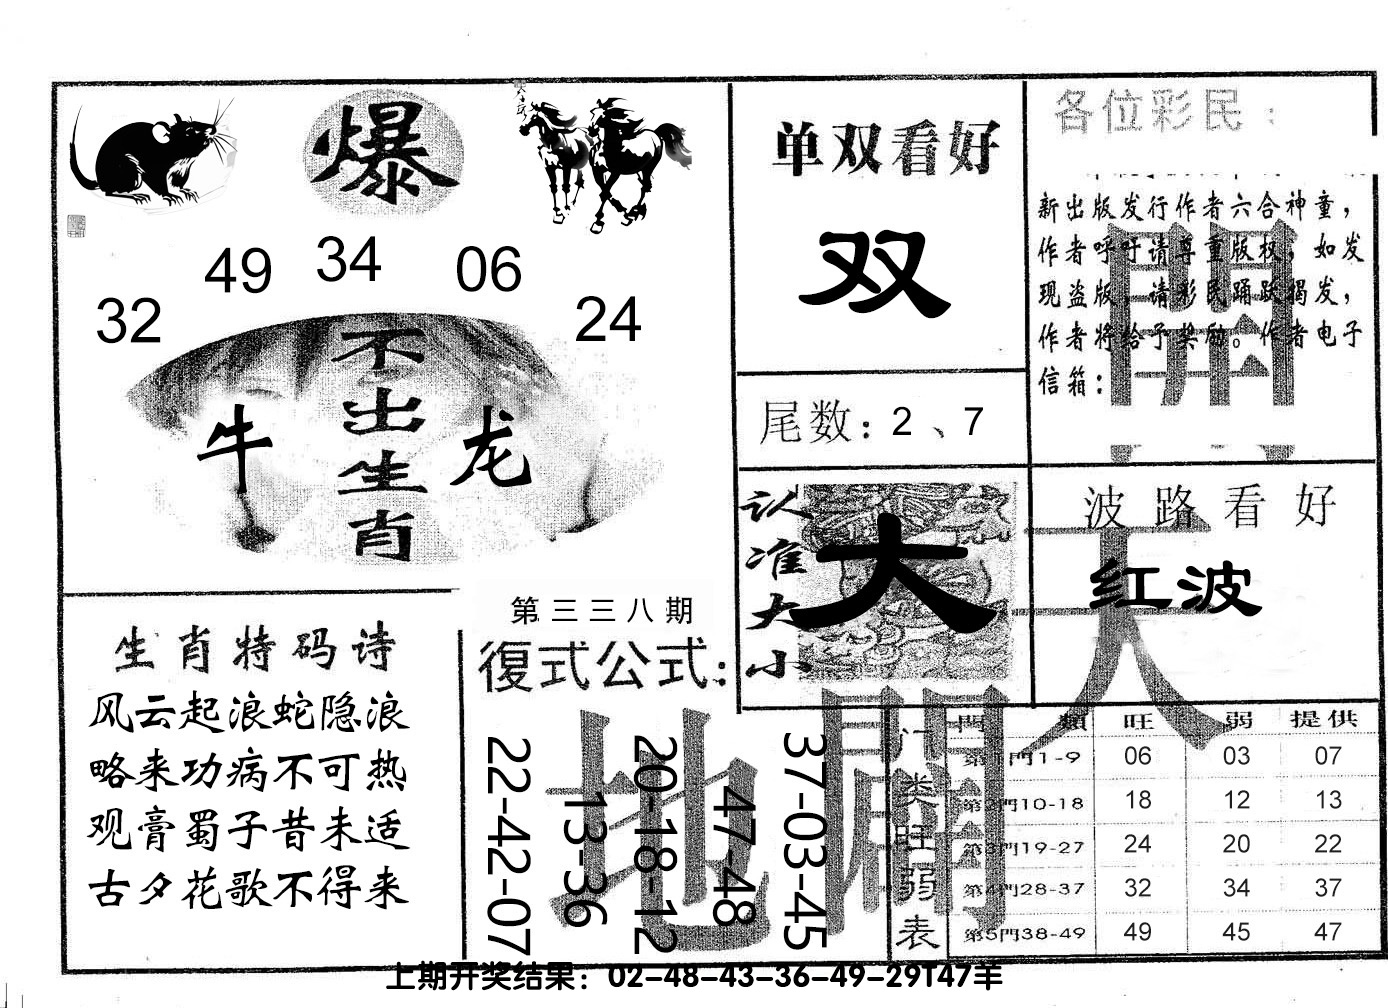 爆
49 34 06
32 24
不出生肖
牛 龙
单双看好
双
尾数：2、7
各位彩民：
新出版发行作者六合神童，
作者呼吁请尊重版权，如发
现盗版，请彩民踊跃揭发，
作者将给予奖励。作者电子
信箱：
認准大小
大
波路看好
红波
生肖特码诗
风云起浪蛇隐浪
略来功病不可热
观膏蜀子昔未适
古夕花歌不得来
第三三八期
復式公式：
22-42-07
13-36
20-18-12
47-48
37-03-45
天地開
门类旺弱表
門類 旺 弱 提供
第1門1-9 06 03 07
第2門10-18 18 12 13
第3門19-27 24 20 22
第4門28-37 32 34 37
第5門38-49 49 45 47
上期开奖结果：02-48-43-36-49-29T47羊